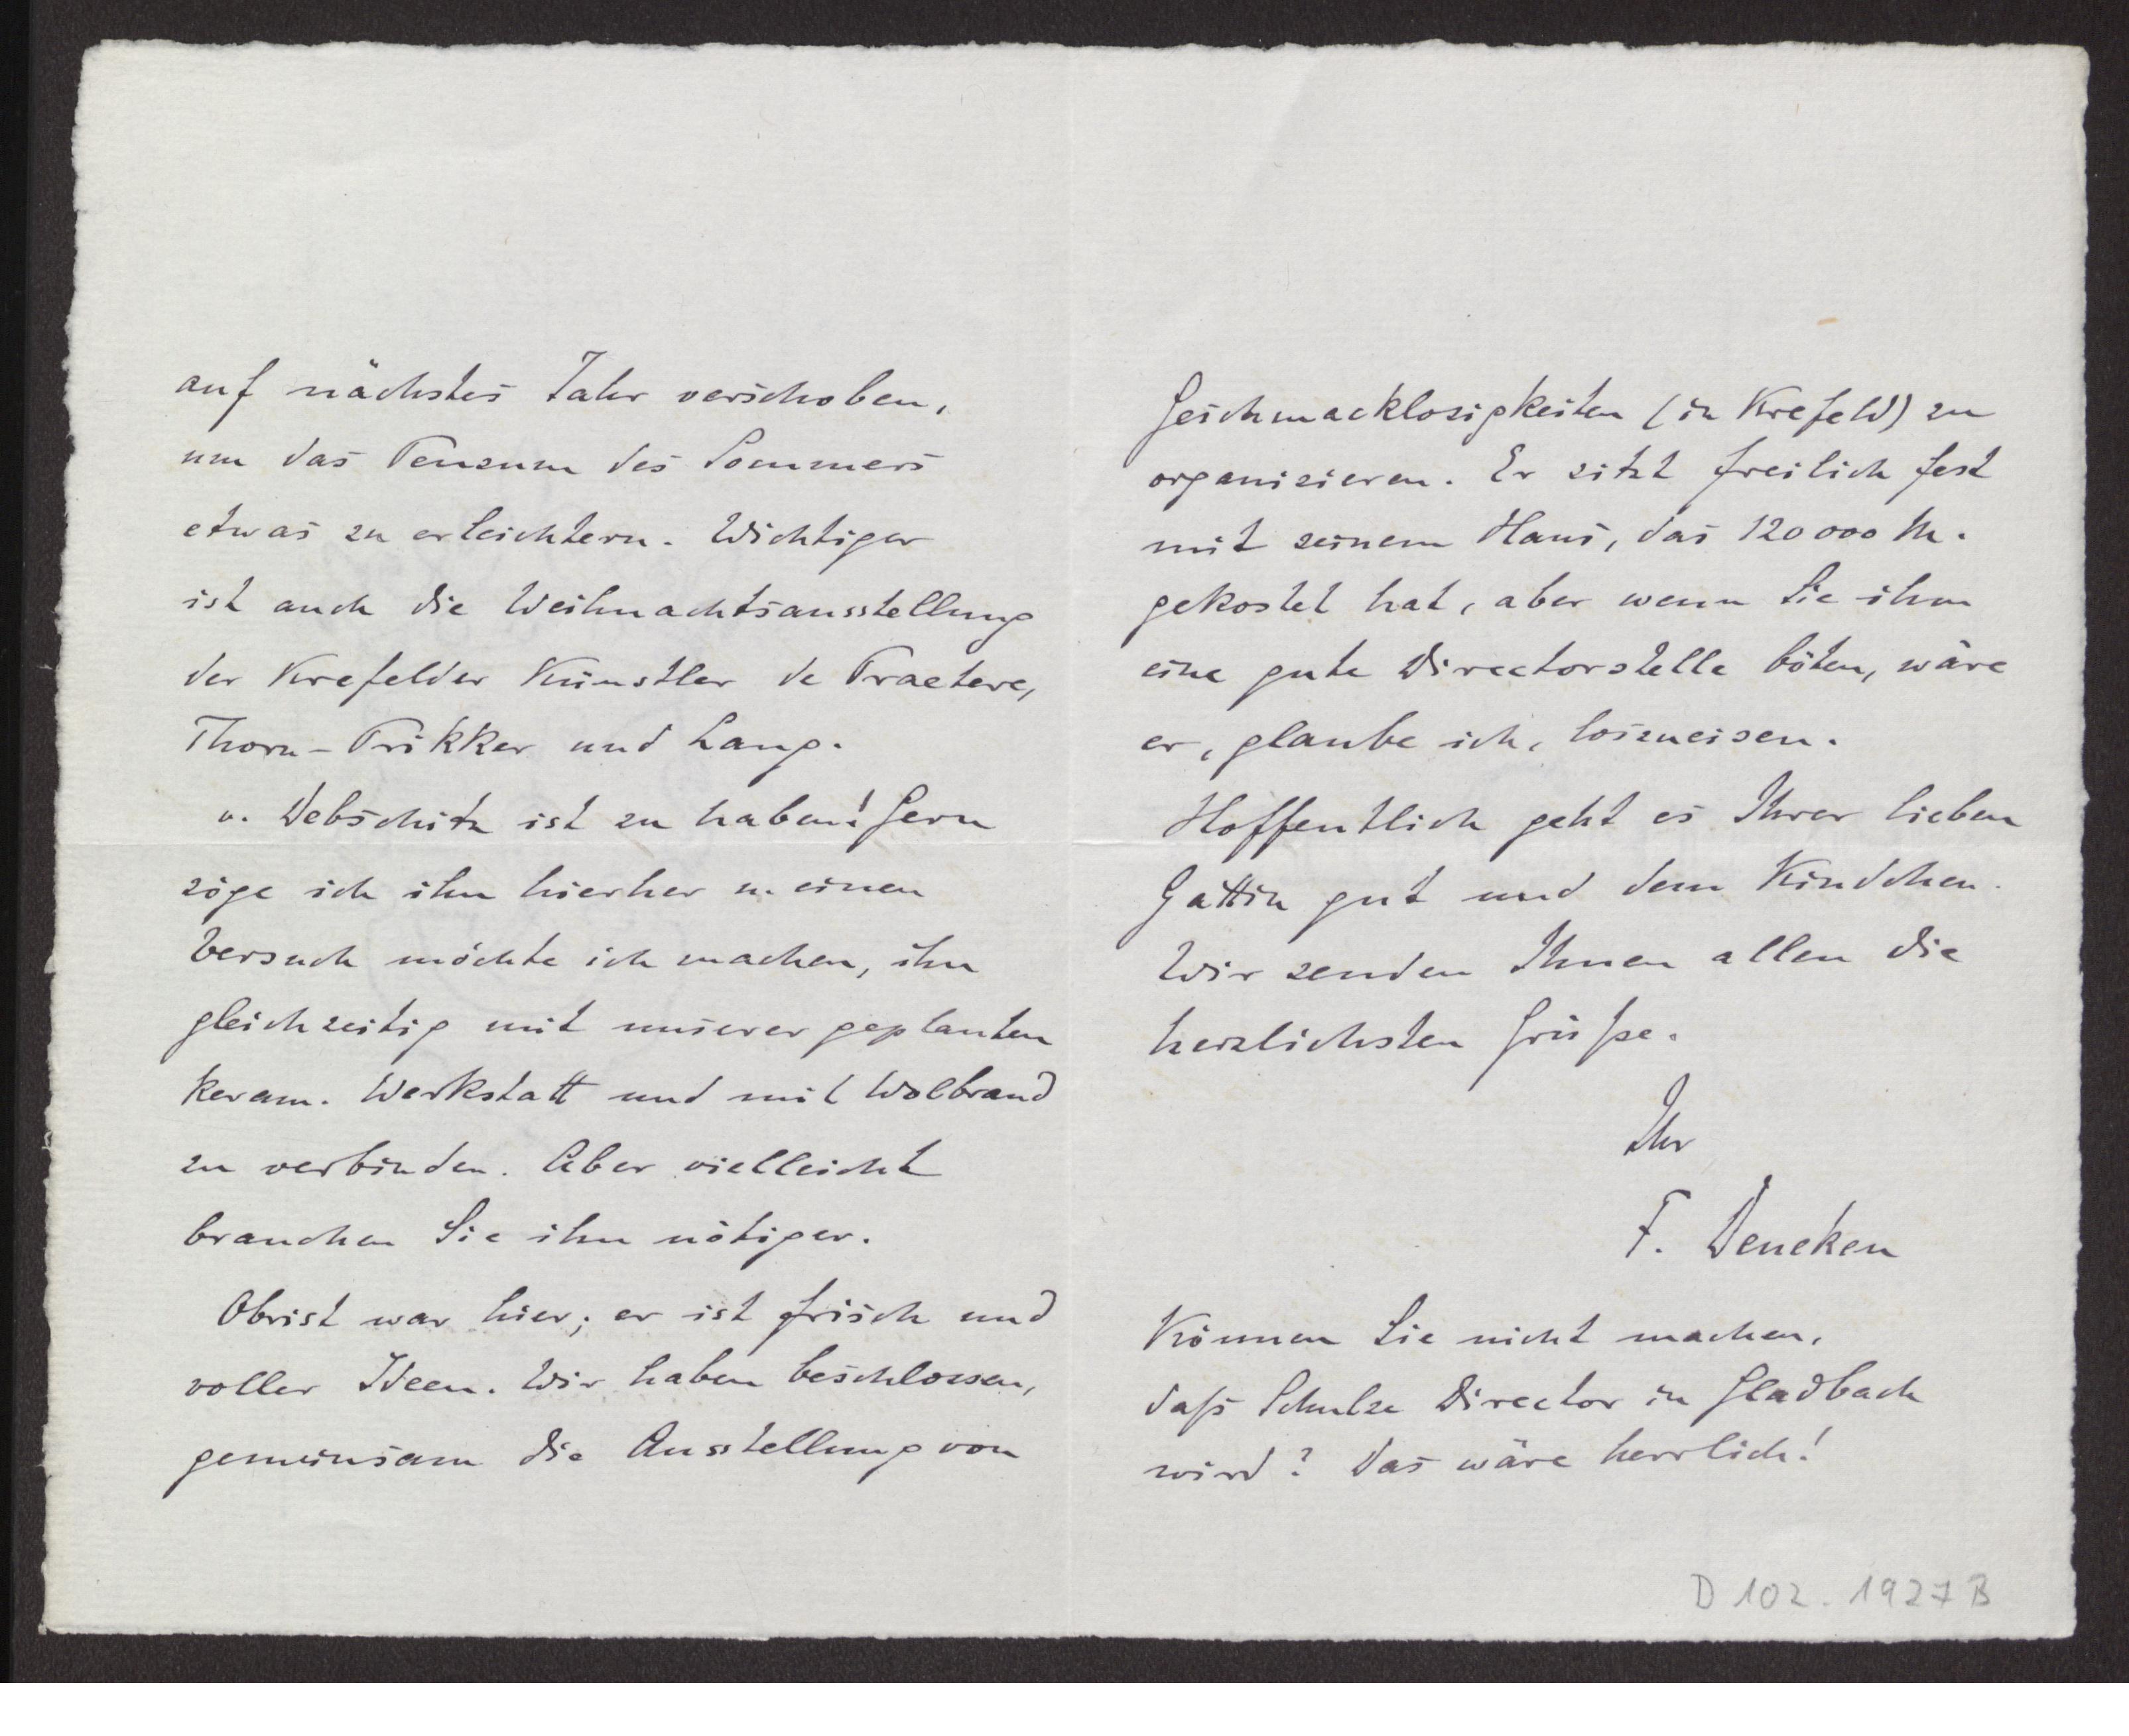 auf nächstes Jahr verschoben,
um das Pensum des Sommers
etwas zu erleichtern. Wichtiger
ist auch die Weihnachtsausstellung
der Krefelder Künstler de Praetere,
Thorn-Prikker und Lang.
v. Debschitz ist zu haben! Gern
zöge ich ihn hierher u. einen
Versuch möchte ich machen, ihn
gleichzeitig mit unserer geplanten
keram. Werkstatt und mit Wolbrand
zu verbinden. Aber vielleicht
brauchen Sie ihn nötiger.
Obrist war hier; er ist frisch und
voller Ideen. Wir haben beschlossen,
gemeinsam die Ausstellung von
Geschmacklosigkeiten (in Krefeld) zu
organisieren. Er sitzt freilich fest
mit seinem Haus, das 120000 M.
gekostet hat, aber wenn Sie ihm
eine gute Directorstelle böten, wäre
er, glaube ich, loszueisen.
Hoffentlich geht es Ihrer lieben
Gattin gut und dem Kindchen.
Wir senden Ihnen allen die
herzlichsten Grüße.
Ihr
F. Deneken
Können Sie nicht machen,
daß Schulze Director in Gladbach
wird? Das wäre herrlich!
D 102. 1927 B